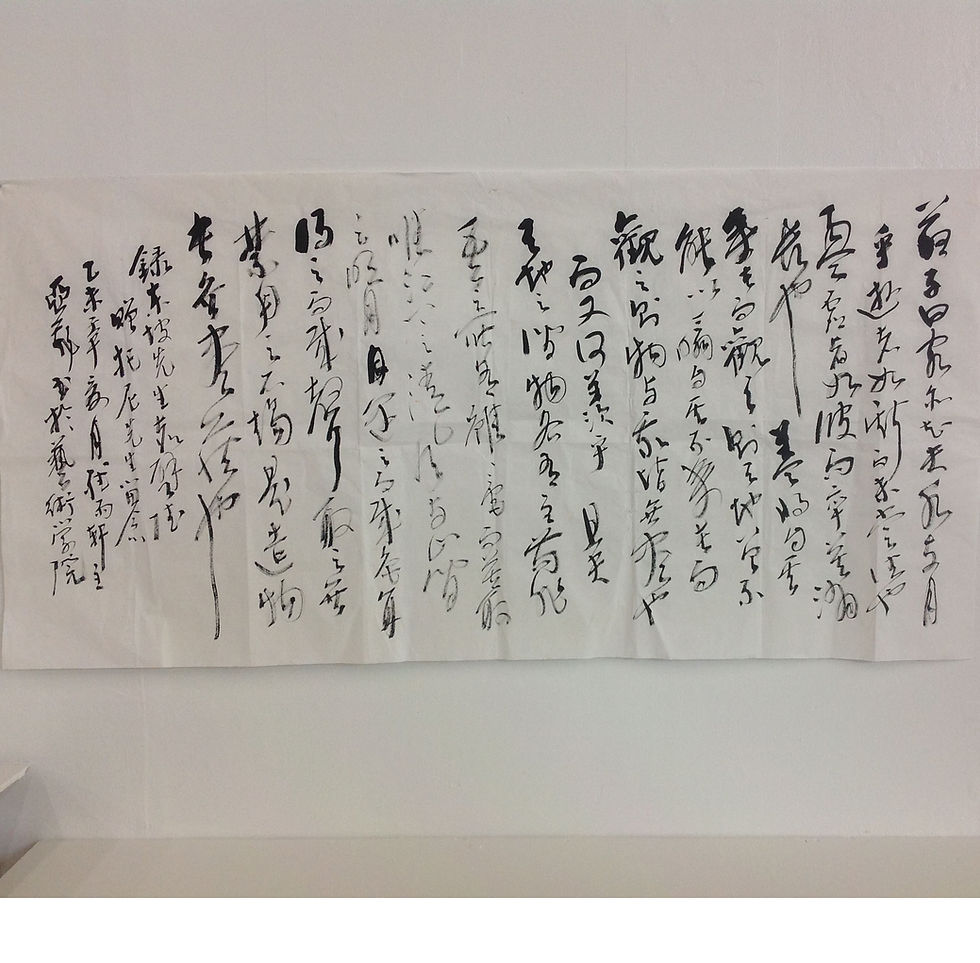 蘇子曰客亦知夫水與月
乎逝者如斯而未嘗往也
盈虛者如彼而卒莫消
長也 蓋將自其
變者而觀之則天地曾不
能以一瞬自其不變者而
觀之則物與我皆無盡也
而又何羨乎 且夫
天地之間物各有主苟非
吾之所有雖一毫而莫取
惟江上之清風與山間
之明月目遇之而成色耳
得之而成聲取之無
禁用之不竭是造物
者無盡之藏也
錄東坡先生赤壁賦
贈托尼先生留念
乙未年夏月聽雨軒主
書於藝術學院